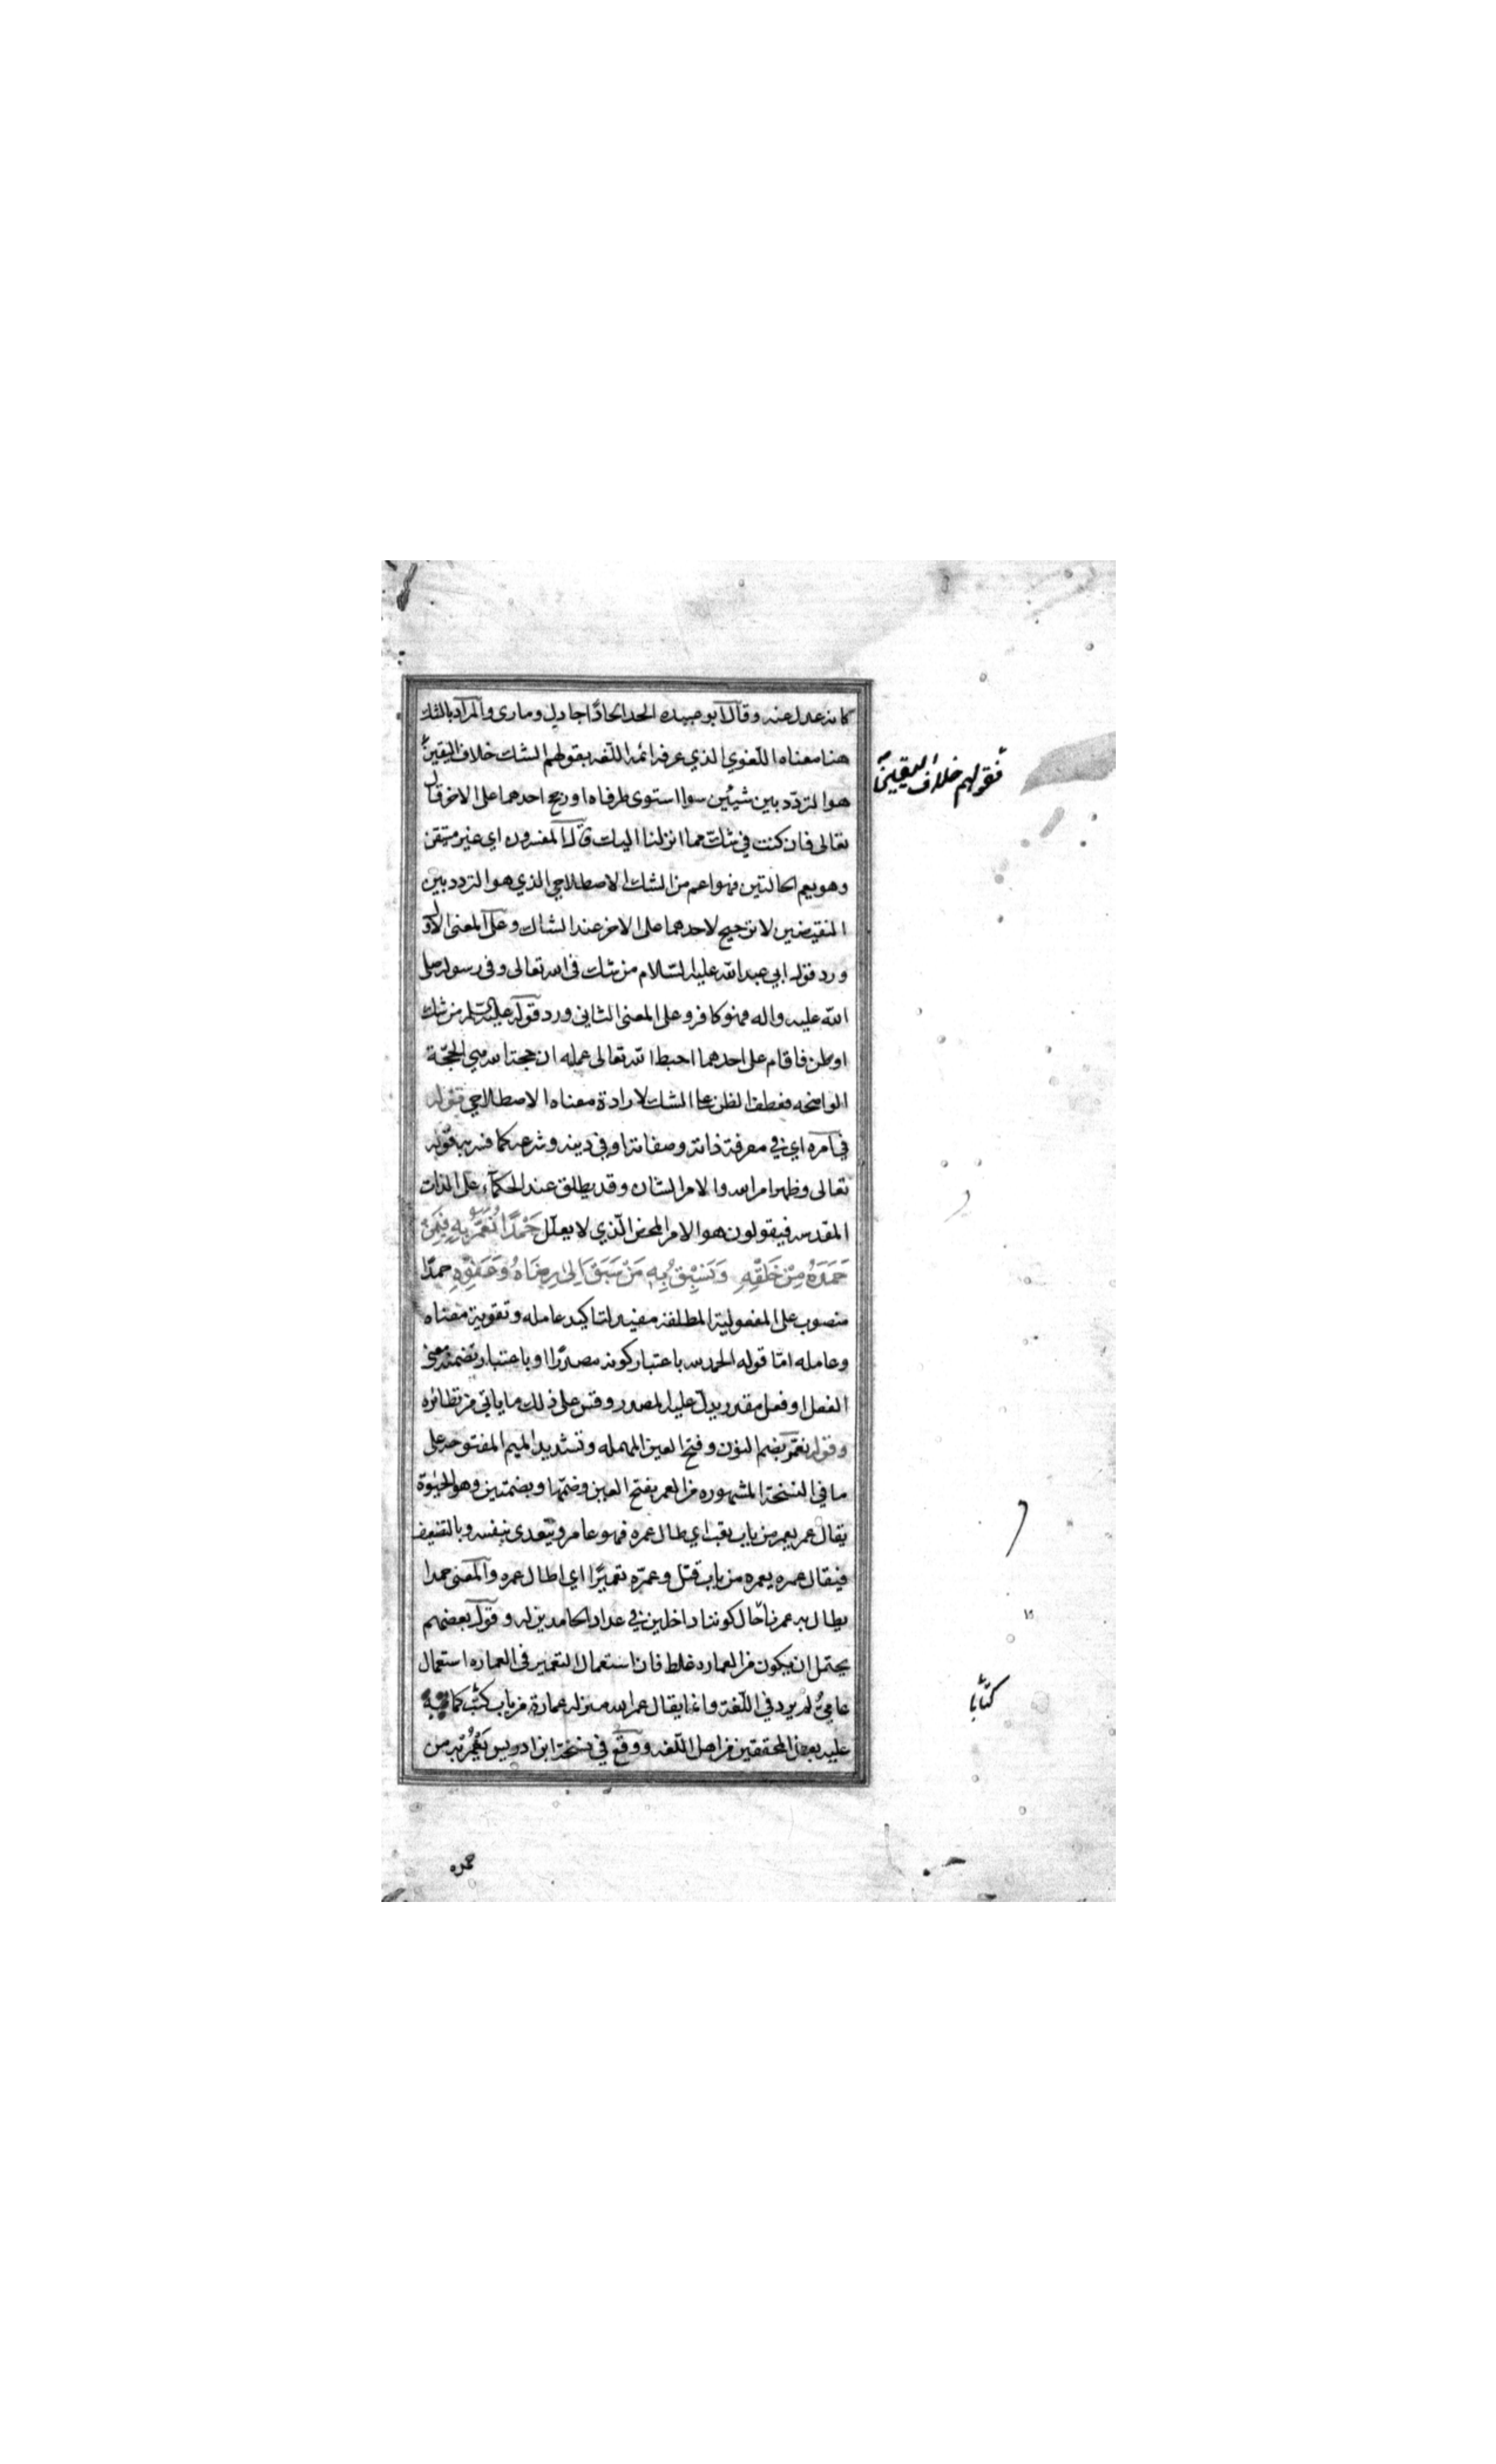 كانه عدل عنه وقال ابو عبيده الحد الحادا جادل ومارى والمراد بالشك
هنا معناه اللغوي الذي عرفه ائمه اللغه بقولهم الشك خلاف اليقين
فقولهم خلاف اليقين
هو التردد بين شيئين سوا استوى طرفاه او رجح احدهما على الاخر قال
تعالى فان كنت في شك مما انزلنا اليك قال المفسرون اي غير متيقن
وهو يعم الحالتين فهو اعم من الشك الاصطلاحي الذي هو التردد بين
النقيضين لا ترجيح لاحدهما على الاخر عند الشاك وعلى المعنى الاول
ورد قوله ابي عبد الله عليه السلام من شك في الله تعالى وفي رسوله صلى
الله عليه واله فهو كافر وعلى المعنى الثاني ورد قوله عليه السلم من شك
او ظن فاقام على احدهما احبط الله تعالى عمله ان حجة الله هي الحجّة
الواضحه فعطف الظن على الشك لارادة معناه الاصطلاحي قوله
في امره اي في معرفة ذاته وصفاته او في دينه وشرعه كما فسر به قوله
تعالى وظهر امر الله والامر الشان وقد يطلق عند الحكمآء على الذات
المقدسه فيقولون هو الامر المحض الّذي لا يعلّل حَمْدًا نُعَمَّرُ بِهِ فِيمَنْ
حَمِدَهُ مِنْ خَلْقِهِ وَنَسْبِقُ بِهِ مَنْ سَبَقَ اِلى رِضَاهُ وَعَفْوِهِ حمدًا
منصوب على المفعولية المطلقة مفيد لتاكيد عامله وتقوية معناه
وعامله امّا قوله الحمد لله باعتبار كونه مصدرًا او باعتبار تضمنه معنى
الفعل او فعل مقدر يدل عليه المصدر وقس على ذلك ما ياتي من نظائره
وقوله نعمّر بضم النون وفتح العين المهمله وتشديد الميم المفتوحه على
ما في النسخة المشهوره من العمر بفتح العين وضمّها وبضمتين وهو الحيوة
يقال عمر يعمر من باب تعب اي طال عمره فهو عامر ويتعدى بنفسه وبالتضعيف
فيقال عمره يعمره من باب قتل وعمّره تعميرًا اي اطال عمره والمعنى حمدا
يطال به عمرنا حال كوننا داخلين في عداد الحامدين له وقول بعضهم
يحتمل ان يكون من العماره غلط فان استعمال التعمير في العماره استعمال
عاميّ لم يرد في اللّغة وانما يقال عمر الله منزله عمارة من باب كتب كما نبه
كتابا
عليه بعض المحققين من اهل اللّغه ووقع في نسخة ابن ادريس نَعْمُرُ به من
عمره